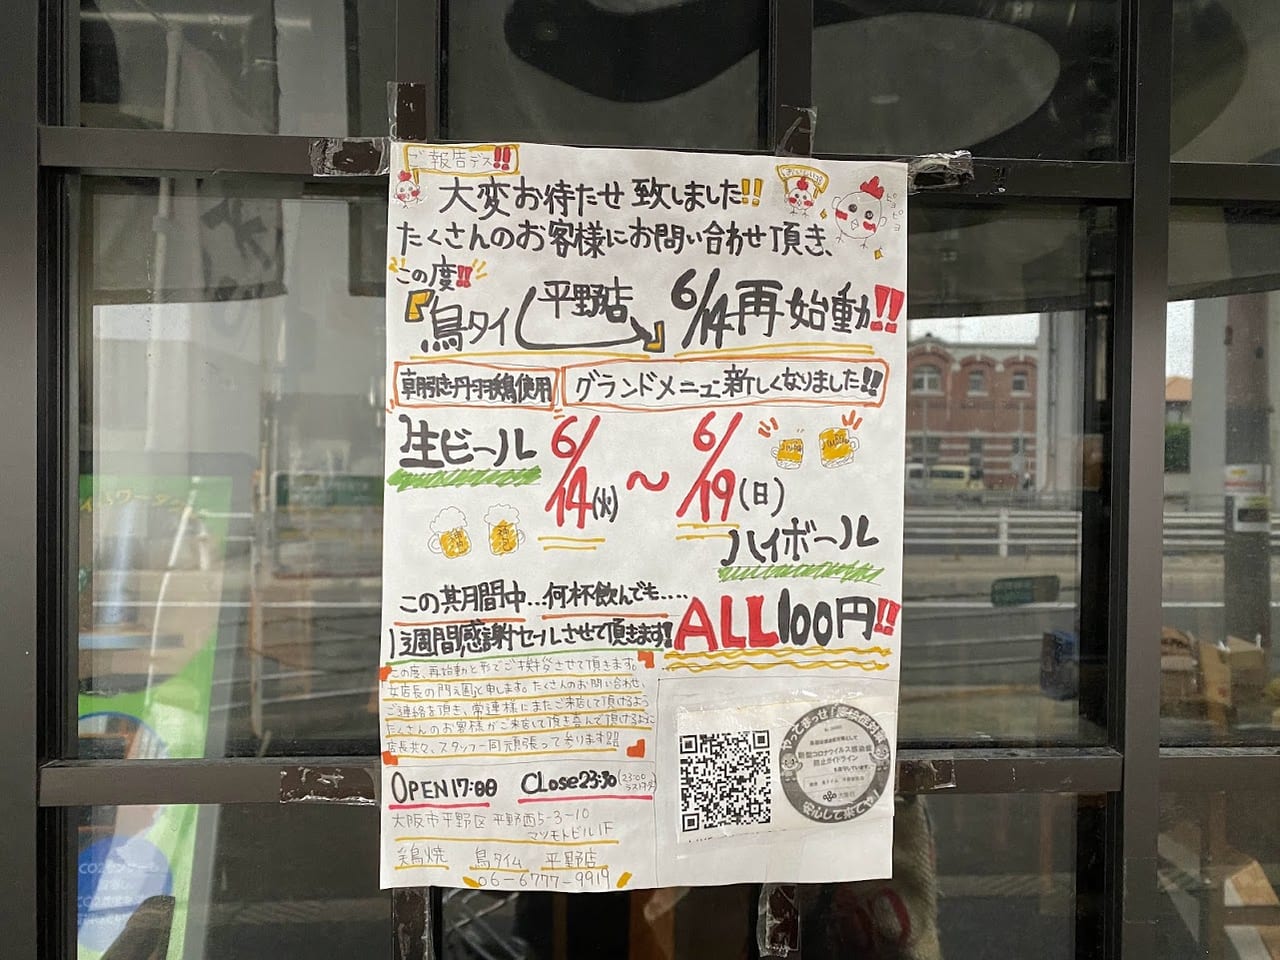 ご報告デス!!
大変お待たせ致しました!!
ピヨピヨ
たくさんのお客様にお問い合わせ頂き、
この度!!
『鳥タイム 平野店』 6/14再始動!!
朝引き丹羽鶏使用 グランドメニュー新しくなりました!!
生ビール 6/14(火)〜6/19(日)
ハイボール
この其月間中...何杯飲んでも.....
1週間感謝セールさせて頂きます! ALL100円!!
この度、再始動とゆでご挨拶させて頂きます。
女店長の と申します。たくさんのお問い合わせ、
ご連絡を頂き、常連様にまたご来店して頂けるよう
たくさんのお客様がご来店して頂き喜んで頂けるように
店長共々、スタッフ一同頑張って参ります
OPEN17:00 CLOSE23:30(23:00ラストオーダー)
大阪市平野区平野西5-3-10
マツモトビル1F
鶏焼 鳥タイム 平野店
06-6777-9919
やってまっせ!感染症対策
新型コロナウイルス感染症
防止ガイドライン
を遵守しています。
大阪府
安心して来てや!